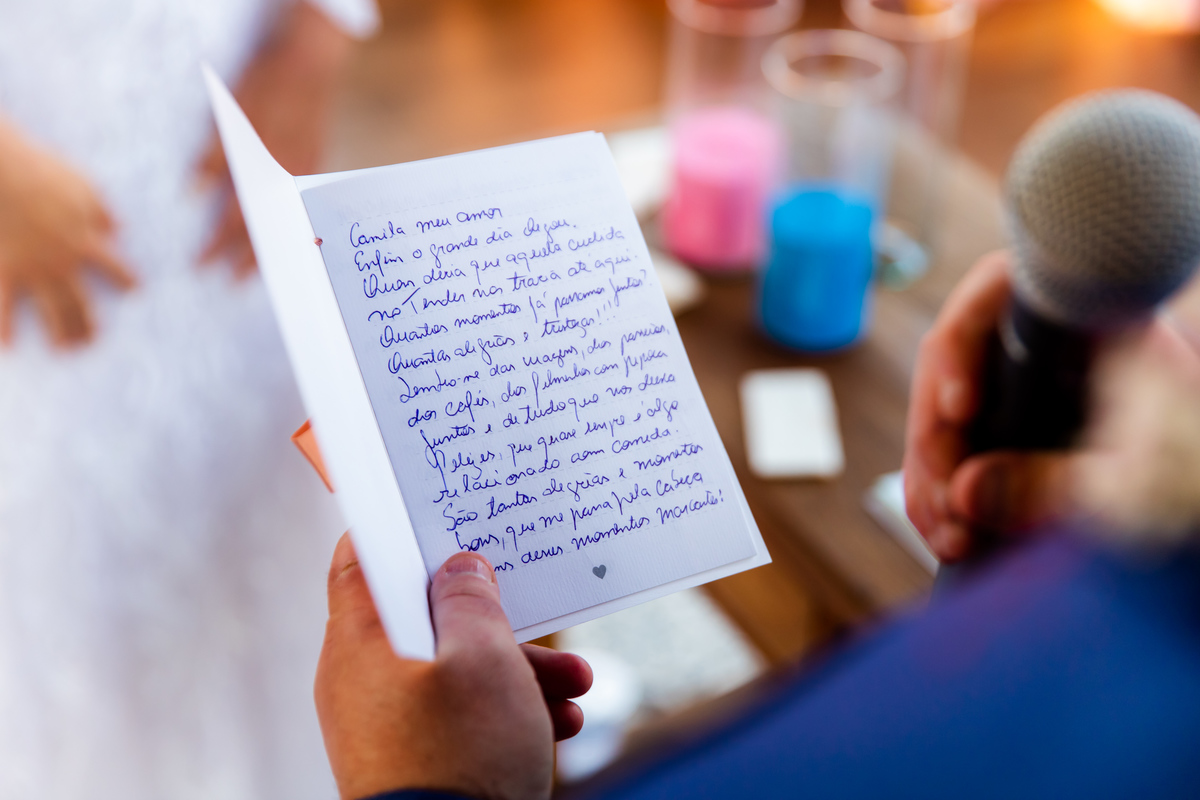 Camila meu amor
Enfim o grande dia chegou.
Quem diria que aquela curtida
no Tinder nos traria até aqui.
Quantos momentos já passamos juntos?
Quantas alegrias e tristezas!!!
Lembro-me das viagens, dos passeios,
dos cafés, dos filminhos com pipoca
juntos e de tudo que nos deixa
felizes, que quase sempre é algo
relacionado com comida.
São tantas alegrias e momentos
bons, que me passa pela cabeça
desses momentos marcantes!